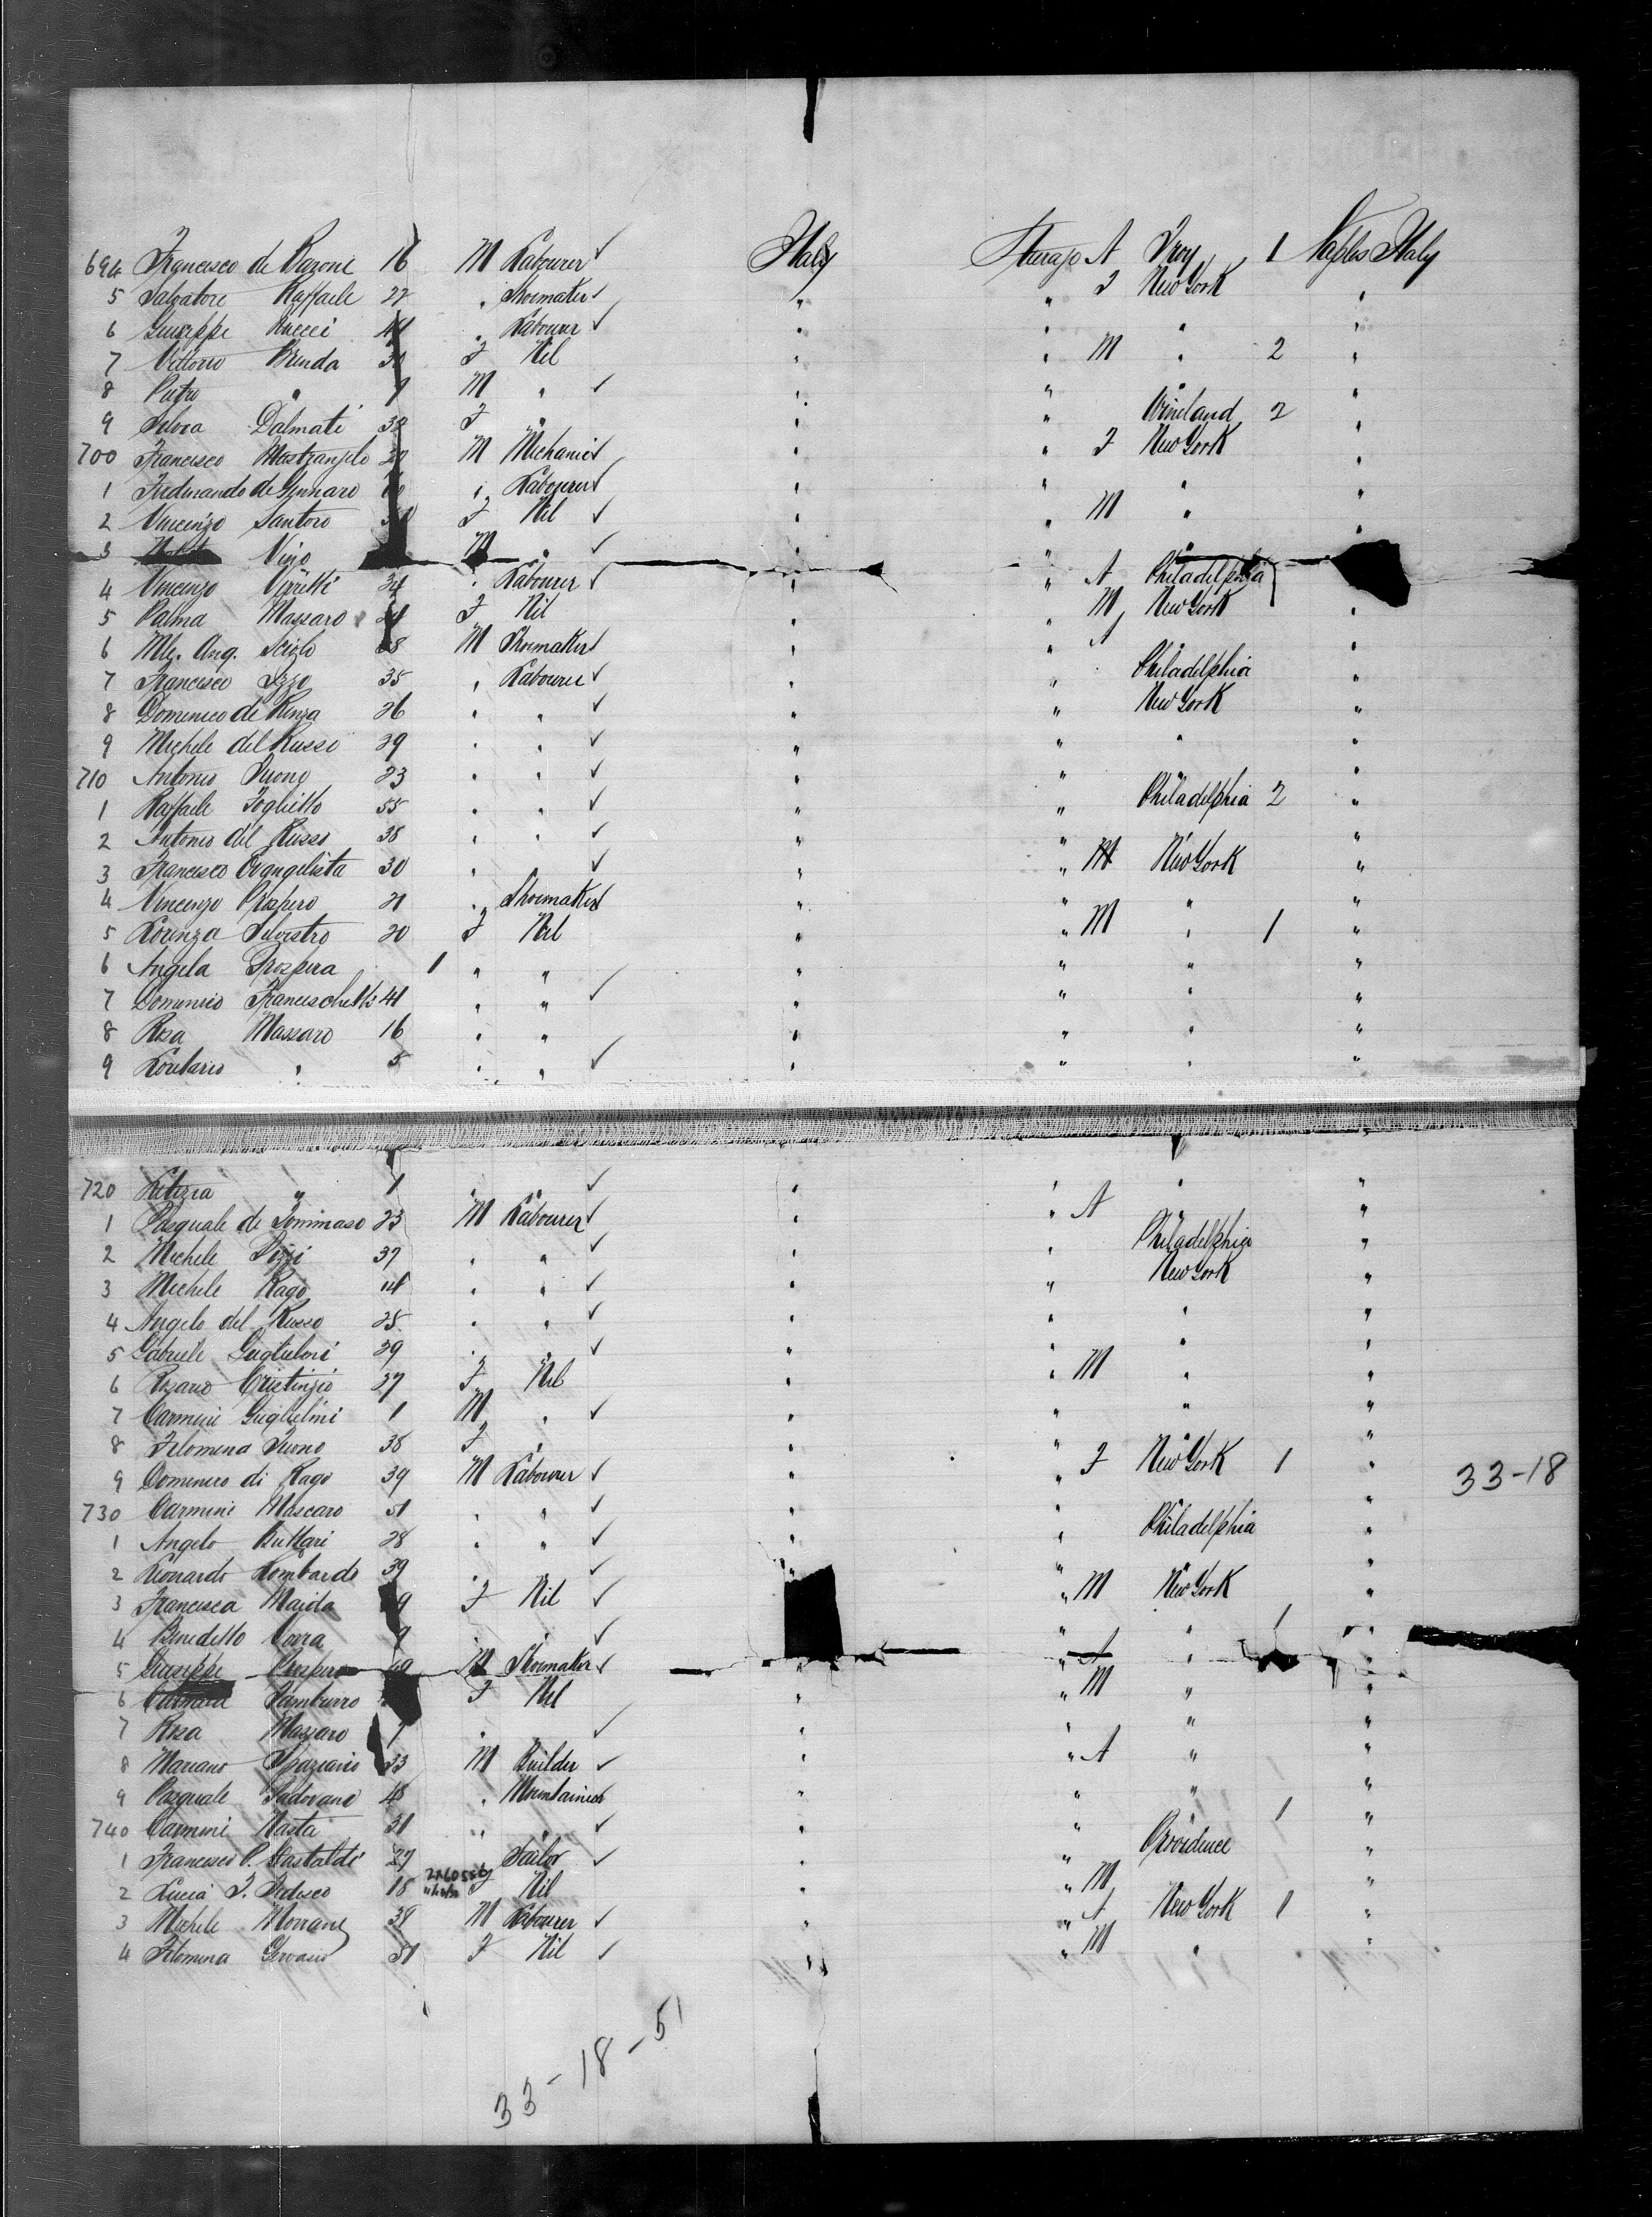 694 Francesco de Bazone 16 M Labourer ✓ Italy Steerage A Troy 1 Naples Italy
5 Salvatore Raffaele 22 " Shoemaker ✓ " " J New York "
6 Giuseppe Bucci " Labourer ✓ " " " "
7 Vittorio Brenda F Nil " " M " 2 "
8 Pietro " M " ✓ " " "
9 Dalmati 32 F " " " Vineland 2 "
700 Francesco Mastrangelo M Mechanic ✓ " " J New York "
1 Ferdinando de Gennaro " Labourer ✓ " " " "
2 Vincenzo Santoro F Nil ✓ " " M " "
3 M " ✓ " " "
4 Vincenzo " Labourer ✓ " " A Philadelphia
5 Palma Massaro F Nil " " M New York "
6 Mle. Ang. M Shoemaker ✓ " " A "
7 Francesco Izzo 35 " Labourer ✓ " " Philadelphia "
8 Domenico de Renza 26 " " ✓ " " New York "
9 Michele del Russo 29 " " ✓ " " " "
710 Antonio Suono 23 " " ✓ " " "
1 Raffaele Foglietto 55 " " ✓ " " Philadelphia 2 "
2 Antonio del Russo 38 " " ✓ " " "
3 Francesco Evangelista 30 " ✓ " " M New York "
4 Vincenzo Prospero 21 " Shoemaker ✓ " " " "
5 Lorenza Silvestro 20 F Nil " " M " 1 "
6 Angela Prospera 1 " " " " " "
7 Domenico Franceschetti 41 " " ✓ " " " "
8 Rosa Massaro 16 " " " " " "
9 " 5 " " ✓ " " " "
720 Letizia " 1 " " ✓ " " " "
1 Pasquale de Tommaso 23 M Labourer ✓ " " A " "
2 Michele 37 " " ✓ " " Philadelphia "
3 Michele Rago " " ✓ " " New York "
4 Angelo del Russo 25 " " ✓ " " " "
5 Gabriele Guglielmi 29 " " ✓ " " " "
6 Rosario Cristinzio 27 F Nil " " M " "
7 Carmini Guglielmi 1 M " ✓ " " " "
8 Filomena Suono 38 F " " " "
9 Domenico di Rago 39 M Labourer ✓ " " J New York 1 " 33-18
730 Carmini Mascaro 51 " " ✓ " " "
1 Angelo Buttari 28 " " ✓ " " Philadelphia "
2 Leonardo Lombardo 39 " " ✓ " " "
3 Francesca Maida F Nil ✓ " M New York "
4 Benedetto 9 " " ✓ " " 1 "
5 Giuseppe Prospero M Shoemaker ✓ " " A " "
6 Tamburro F Nil " " M " "
7 Rosa Massaro " ✓ " " " "
8 Mariano Spaziano 33 M Builder ✓ " " A " "
9 Pasquale Padovano 48 " ✓ " " " "
740 Carmini Nasta 31 " " ✓ " " 1 "
1 Francesco P. Gastaldi 27 Tailor ✓ " " Providence "
2 Lucia T. Tedesco 18 F Nil " " M "
3 Michele 38 M Labourer ✓ " " A New York 1 "
4 Filomena Gervasio F Nil ✓ " " M " "
33-18-51